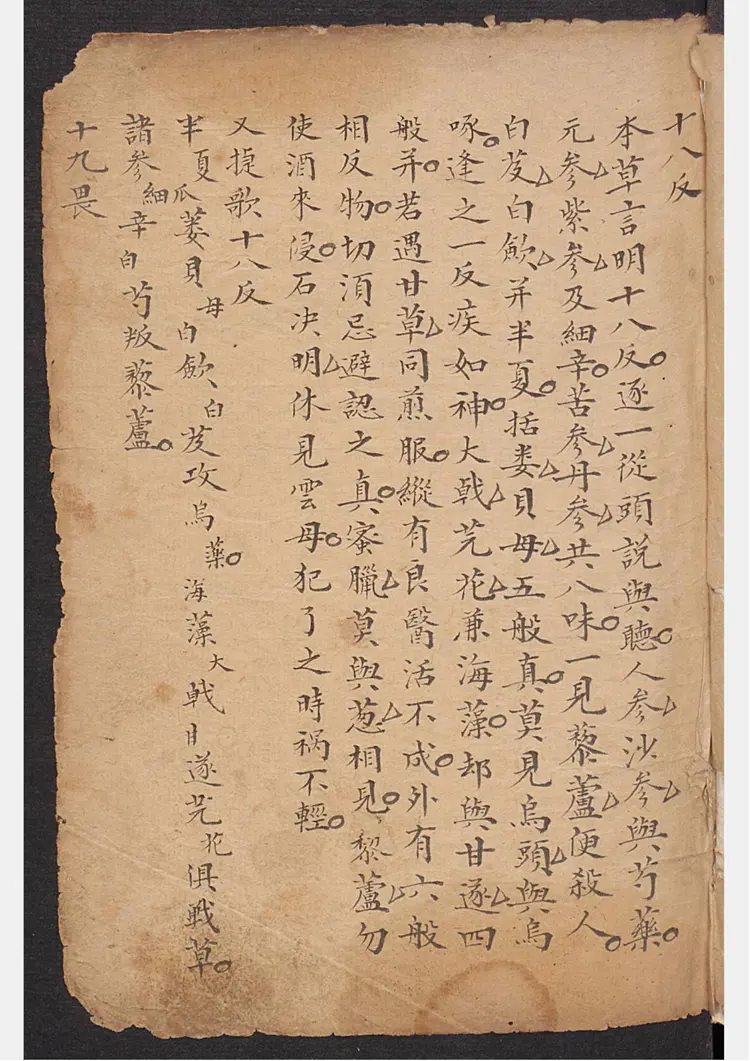 十八反
本草言明十八反。逐一從頭說與聽。人参沙参與芍藥。
元参紫参及細辛。苦参丹参共八味。一見藜蘆便殺人。
白芨白歛并半夏。括蒌貝母五般真。莫見烏頭與烏
啄。逢之一反疾如神。大戟芫花兼海藻。却與甘遂四
般并。若遇甘草同煎服。縱有良醫活不成。外有六般
相反物。切湏忌避認之真。蜜臘莫與葱相見。藜蘆勿
使酒來浸。石决明休見雲母。犯了之時禍不輕。
又捷歌十八反
半夏瓜蒌貝母白歛、白芨攻烏藥。海藻大戟甘遂芫花俱戰草。
諸参細辛白芍叛藜蘆。
十九畏